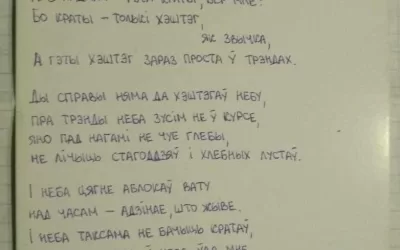 КРАТЫ,
БО КРАТЫ – ТОЛЬКІ ХЭШТЭГ,
ЯК ЗВЫЧКА,
А ГЭТЫ ХЭШТЭГ ЗАРАЗ ПРОСТА Ў ТРЭНДАХ.
ДЫ СПРАВЫ НЯМА ДА ХЭШТЭГАЎ НЕБУ,
ПРА ТРЭНДЫ НЕБА ЗУСІМ НЕ Ў КУРСЕ,
ЯНО ПАД НАГАМІ НЕ ЧУЕ ГЛЕБЫ,
НЕ ЛІЧЫЦЬ СТАГОДДЗЯЎ І ХЛЕБНЫХ ЛУСТАЎ.
І НЕБА ЦЯГНЕ АБЛОКАЎ ВАТУ
НАД ЧАСАМ – АДЗІНАЕ, ШТО ЖЫВЕ.
І НЕБА ТАКСАМА НЕ БАЧЫЦЬ КРАТАЎ,